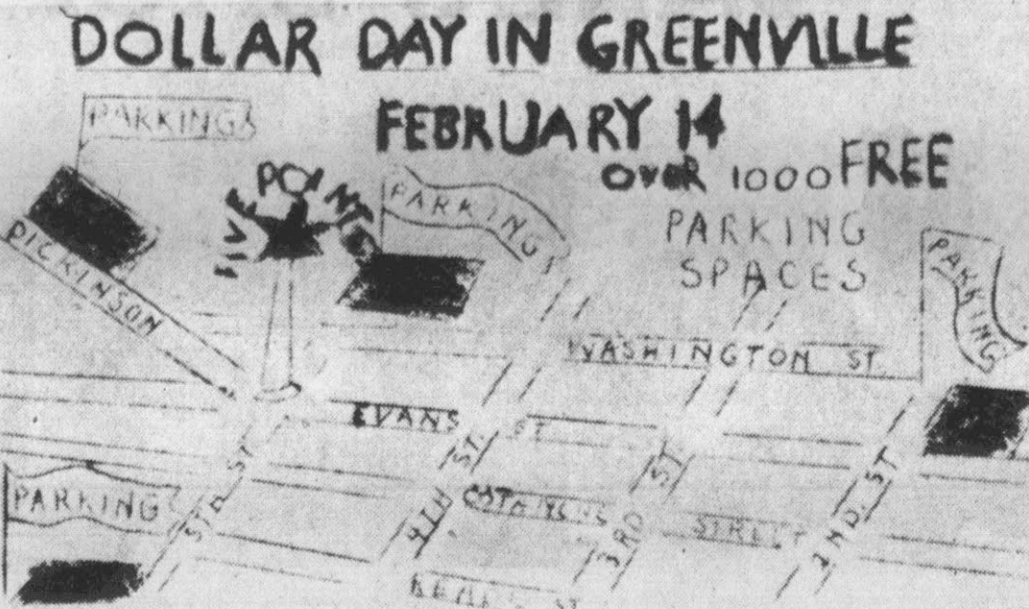 DOLLAR DAY IN GREENVILLE
FEBRUARY 14
OVER 1000 FREE
PARKING
SPACES
PARKING
FIVE POINTS
PARKING
PARKING
DICKINSON
WASHINGTON ST.
EVANS ST
5TH ST
4TH ST.
3RD ST
2ND. ST
STREET
PARKING
ST